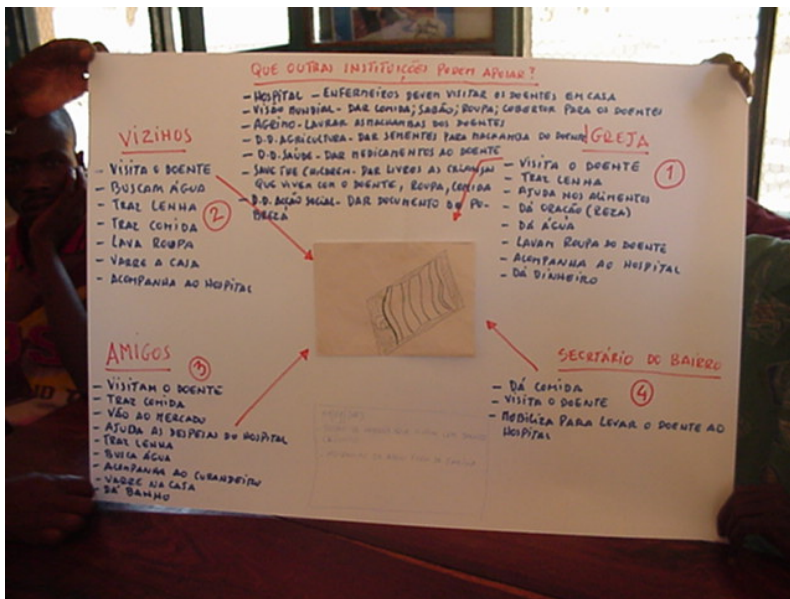 QUE OUTRAS INSTITUIÇÕES PODEM APOIAR?
- HOSPITAL - ENFERMEIROS DEVEM VISITAR OS DOENTES EM CASA
- VISÃO MUNDIAL - DAR COMIDA; SABÃO; ROUPA; COBERTOR PARA OS DOENTES
- AGRIMO - LAVRAR AS MACHAMBAS DOS DOENTES
- D.D. AGRICULTURA - DAR SEMENTES PARA MACHAMBA DO DOENTE
- D.D. SAÚDE - DAR MEDICAMENTOS AO DOENTE
- SAVE THE CHILDREN - DAR LIVROS AS CRIANÇAS
QUE VIVEM COM O DOENTE, ROUPA, COMIDA
- D.D. ACÇÃO SOCIAL - DAR DOCUMENTO DE PO-
BREZA
VIZIHOS
- VISITA O DOENTE
- BUSCAM ÁGUA
- TRAZ LENHA
2
- TRAZ COMIDA
- LAVA ROUPA
- VARRE A CASA
- ACOMPANHA AO HOSPITAL
IGREJA
1
- VISITA O DOENTE
- TRAZ LENHA
- AJUDA NOS ALIMENTOS
- DÁ ORAÇÃO (REZA)
- DÁ ÁGUA
- LAVAM ROUPA DO DOENTE
- ACOMPANHA AO HOSPITAL
- DÁ DINHEIRO
AMIGOS
3
- VISITAM O DOENTE
- TRAZ COMIDA
- VÃO AO MERCADO
- AJUDA AS DESPESAS DO HOSPITAL
- TRAZ LENHA
- BUSCA ÁGUA
- ACOMPANHA AO CURANDEIRO
- VARRE NA CASA
- DÁ BANHO
SECRTÁRIO DO BAIRRO
4
- DÁ COMIDA
- VISITA O DOENTE
- MOBILIZA PARA LEVAR O DOENTE AO
HOSPITAL